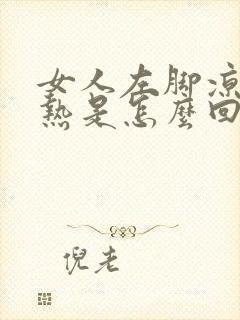 女人左脚凉
熱是怎麼回
倪老